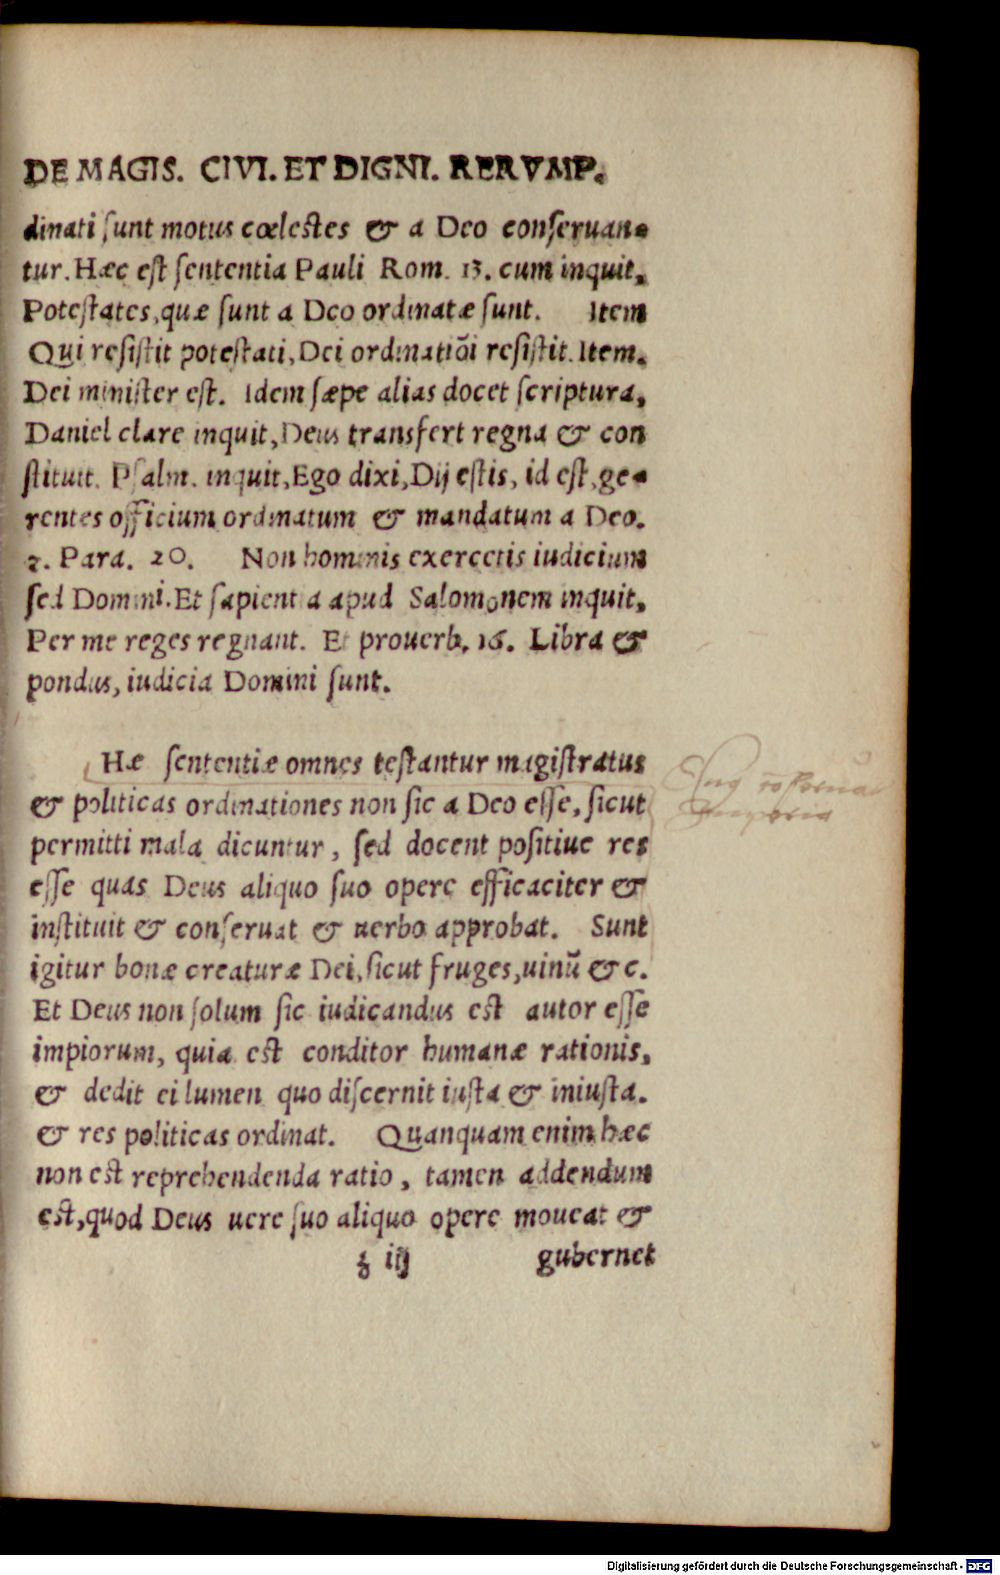 DE MAGIS. CIVI. ET DIGNI. RERVMP.
dinati ſunt motus cœleſtes & a Deo conſeruan-
tur. Hæc eſt ſententia Pauli Rom. 13. cum inquit,
Poteſtates, quæ ſunt a Deo ordinatæ ſunt. Item
Qui reſiſtit poteſtati, Dei ordinatiōi reſiſtit. Item.
Dei miniſter eſt. Idem ſæpe alias docet ſcriptura,
Daniel clare inquit, Deus transfert regna & con
ſtituit. Pſalm. inquit, Ego dixi, Dij eſtis, id eſt, ge-
rentes officium ordinatum & mandatum a Deo.
2. Para. 20. Non hominis exercetis iudicium
ſed Domini. Et ſapientia apud Salomonem inquit,
Per me reges regnant. Et prouerb. 16. Libra &
pondus, iudicia Domini ſunt.
Hæ ſententiæ omnes teſtantur magiſtratus
& politicas ordinationes non ſic a Deo eſſe, ſicut
permitti mala dicuntur, ſed docent poſitiue res
eſſe quas Deus aliquo ſuo opere efficaciter &
inſtituit & conſeruat & uerbo approbat. Sunt
igitur bonæ creaturæ Dei, ſicut fruges, uinū &c.
Et Deus non ſolum ſic iudicandus eſt autor eſſe
impiorum, quia eſt conditor humanæ rationis,
& dedit ei lumen quo diſcernit iuſta & iniuſta.
& res politicas ordinat. Quanquam enim hæc
non eſt reprehendenda ratio, tamen addendum
eſt, quod Deus uere ſuo aliquo opere moueat &
z iij gubernet
Imperia
Digitalisierung gefördert durch die Deutsche Forschungsgemeinschaft - DFG